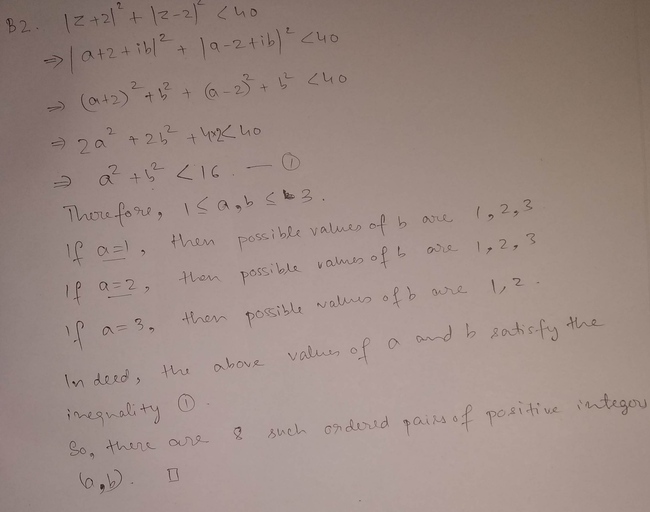 B2. |z+2|² + |z-2|² < 40
⇒ |a+2+ib|² + |a-2+ib|² < 40
⇒ (a+2)² + b² + (a-2)² + b² < 40
⇒ 2a² + 2b² + 4x2 < 40
⇒ a² + b² < 16. — ①
Therefore, 1 ≤ a,b ≤ 3.
If a=1, then possible values of b are 1, 2, 3
If a=2, then possible values of b are 1, 2, 3
If a=3, then possible values of b are 1, 2.
Indeed, the above values of a and b satisfy the
inequality ①.
So, there are 8 such ordered pairs of positive integers
(a,b). □